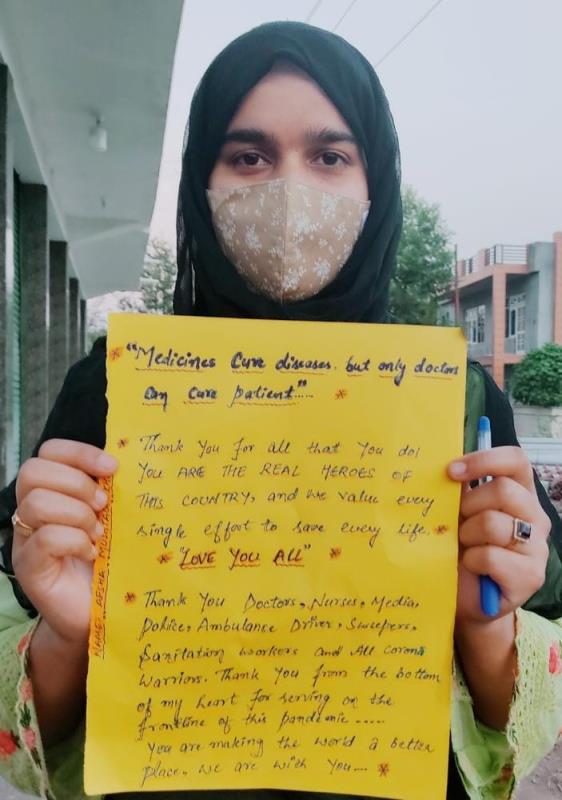 "Medicines Cure diseases. but only doctors
can Cure patient"....
Thank You for all that You do!
You ARE THE REAL HEROES OF
THIS COUNTRY, and we value every
single effort to save every life.
"LOVE YOU ALL"
Thank You Doctors, Nurses, Media,
Police, Ambulance Driver, Sweepers,
Sanitation workers and All corona
Warriors. Thank You from the bottom
of my heart for serving on the
frontline of this pandemic .....
You are making the world a better
place, we are with You....
NAME: AFSHA